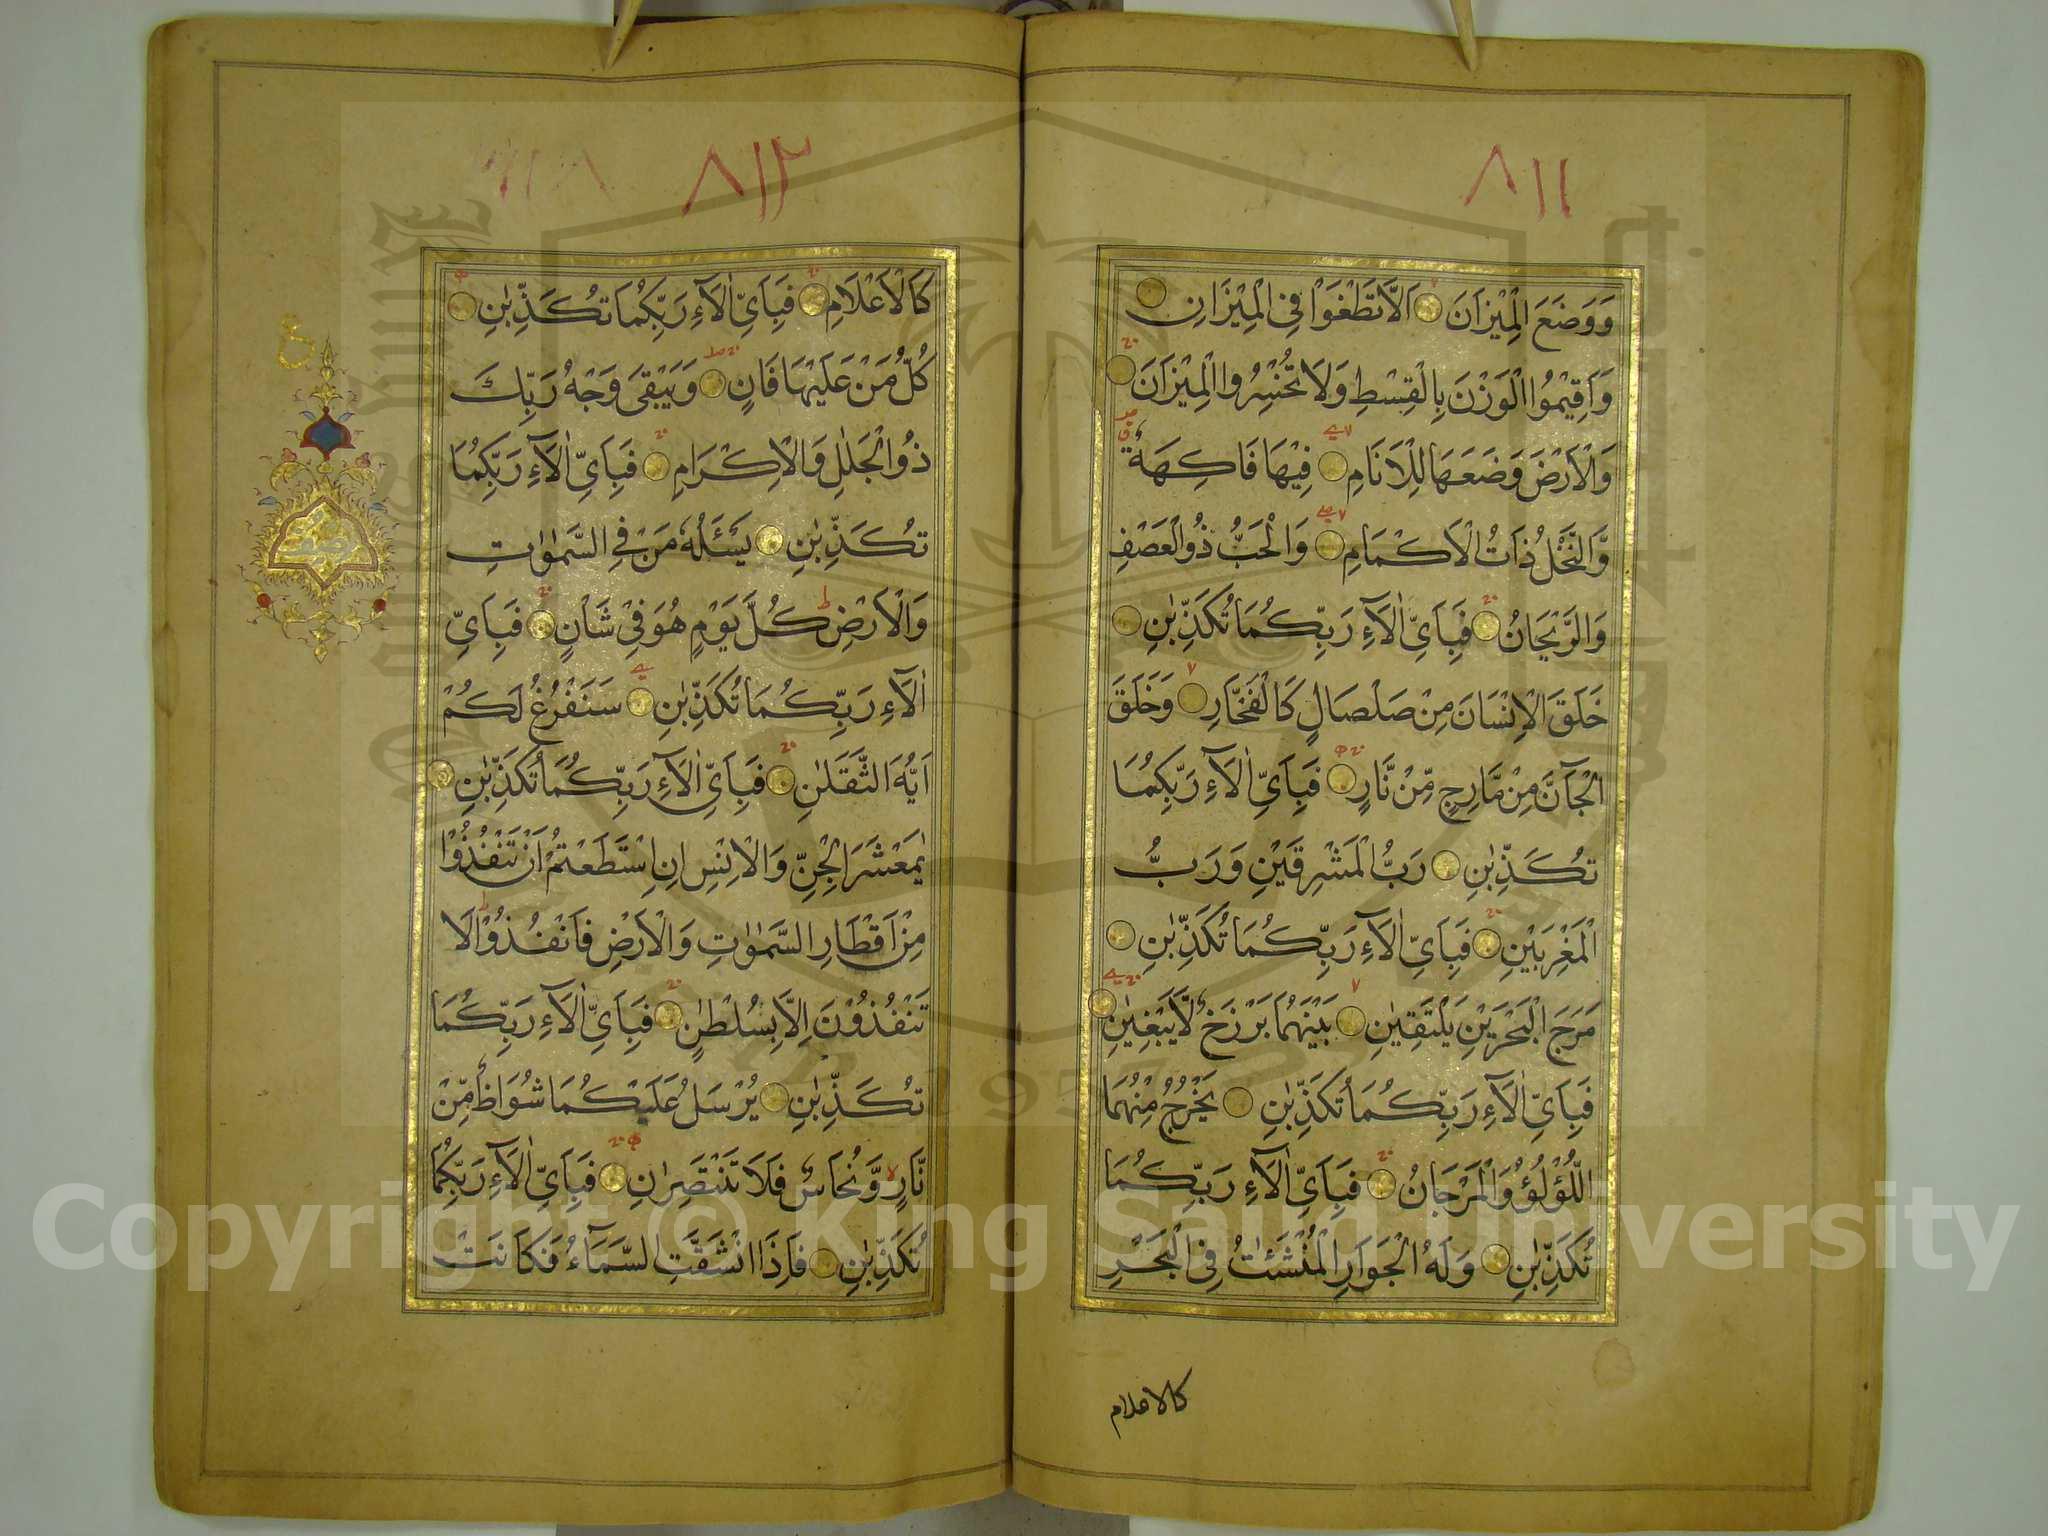 ٨١١
وَوَضَعَ الْمِيْزَانَ اَلَّا تَطْغَوْا فِي الْمِيْزَانِ
وَاَقِيْمُوا الْوَزْنَ بِالْقِسْطِ وَلَا تُخْسِرُوا الْمِيْزَانَ
وَالْاَرْضَ وَضَعَهَا لِلْاَنَامِ فِيْهَا فَاكِهَةٌ
وَّالنَّخْلُ ذَاتُ الْاَكْمَامِ وَالْحَبُّ ذُو الْعَصْفِ
وَالرَّيْحَانُ فَبِاَيِّ اٰلَآءِ رَبِّكُمَا تُكَذِّبٰنِ
خَلَقَ الْاِنْسَانَ مِنْ صَلْصَالٍ كَالْفَخَّارِ وَخَلَقَ
الْجَآنَّ مِنْ مَّارِجٍ مِّنْ نَّارٍ فَبِاَيِّ اٰلَآءِ رَبِّكُمَا
تُكَذِّبٰنِ رَبُّ الْمَشْرِقَيْنِ وَرَبُّ
الْمَغْرِبَيْنِ فَبِاَيِّ اٰلَآءِ رَبِّكُمَا تُكَذِّبٰنِ
مَرَجَ الْبَحْرَيْنِ يَلْتَقِيٰنِ بَيْنَهُمَا بَرْزَخٌ لَّا يَبْغِيٰنِ
فَبِاَيِّ اٰلَآءِ رَبِّكُمَا تُكَذِّبٰنِ يَخْرُجُ مِنْهُمَا
اللُّؤْلُؤُ وَالْمَرْجَانُ فَبِاَيِّ اٰلَآءِ رَبِّكُمَا
تُكَذِّبٰنِ وَلَهُ الْجَوَارِ الْمُنْشَئٰتُ فِي الْبَحْرِ
كالاعلام
٨١٢
كَالْاَعْلَامِ فَبِاَيِّ اٰلَآءِ رَبِّكُمَا تُكَذِّبٰنِ
كُلُّ مَنْ عَلَيْهَا فَانٍ وَيَبْقٰى وَجْهُ رَبِّكَ
ذُو الْجَلٰلِ وَالْاِكْرَامِ فَبِاَيِّ اٰلَآءِ رَبِّكُمَا
تُكَذِّبٰنِ يَسْـَٔلُهٗ مَنْ فِي السَّمٰوٰتِ
وَالْاَرْضِ كُلَّ يَوْمٍ هُوَ فِيْ شَاْنٍ فَبِاَيِّ
اٰلَآءِ رَبِّكُمَا تُكَذِّبٰنِ سَنَفْرُغُ لَكُمْ
اَيُّهَ الثَّقَلٰنِ فَبِاَيِّ اٰلَآءِ رَبِّكُمَا تُكَذِّبٰنِ
يٰمَعْشَرَ الْجِنِّ وَالْاِنْسِ اِنِ اسْتَطَعْتُمْ اَنْ تَنْفُذُوْا
مِنْ اَقْطَارِ السَّمٰوٰتِ وَالْاَرْضِ فَانْفُذُوْا لَا
تَنْفُذُوْنَ اِلَّا بِسُلْطٰنٍ فَبِاَيِّ اٰلَآءِ رَبِّكُمَا
تُكَذِّبٰنِ يُرْسَلُ عَلَيْكُمَا شُوَاظٌ مِّنْ
نَّارٍ وَّنُحَاسٌ فَلَا تَنْتَصِرٰنِ فَبِاَيِّ اٰلَآءِ رَبِّكُمَا
تُكَذِّبٰنِ فَاِذَا انْشَقَّتِ السَّمَآءُ فَكَانَتْ
نصف
Copyright © King Saud University